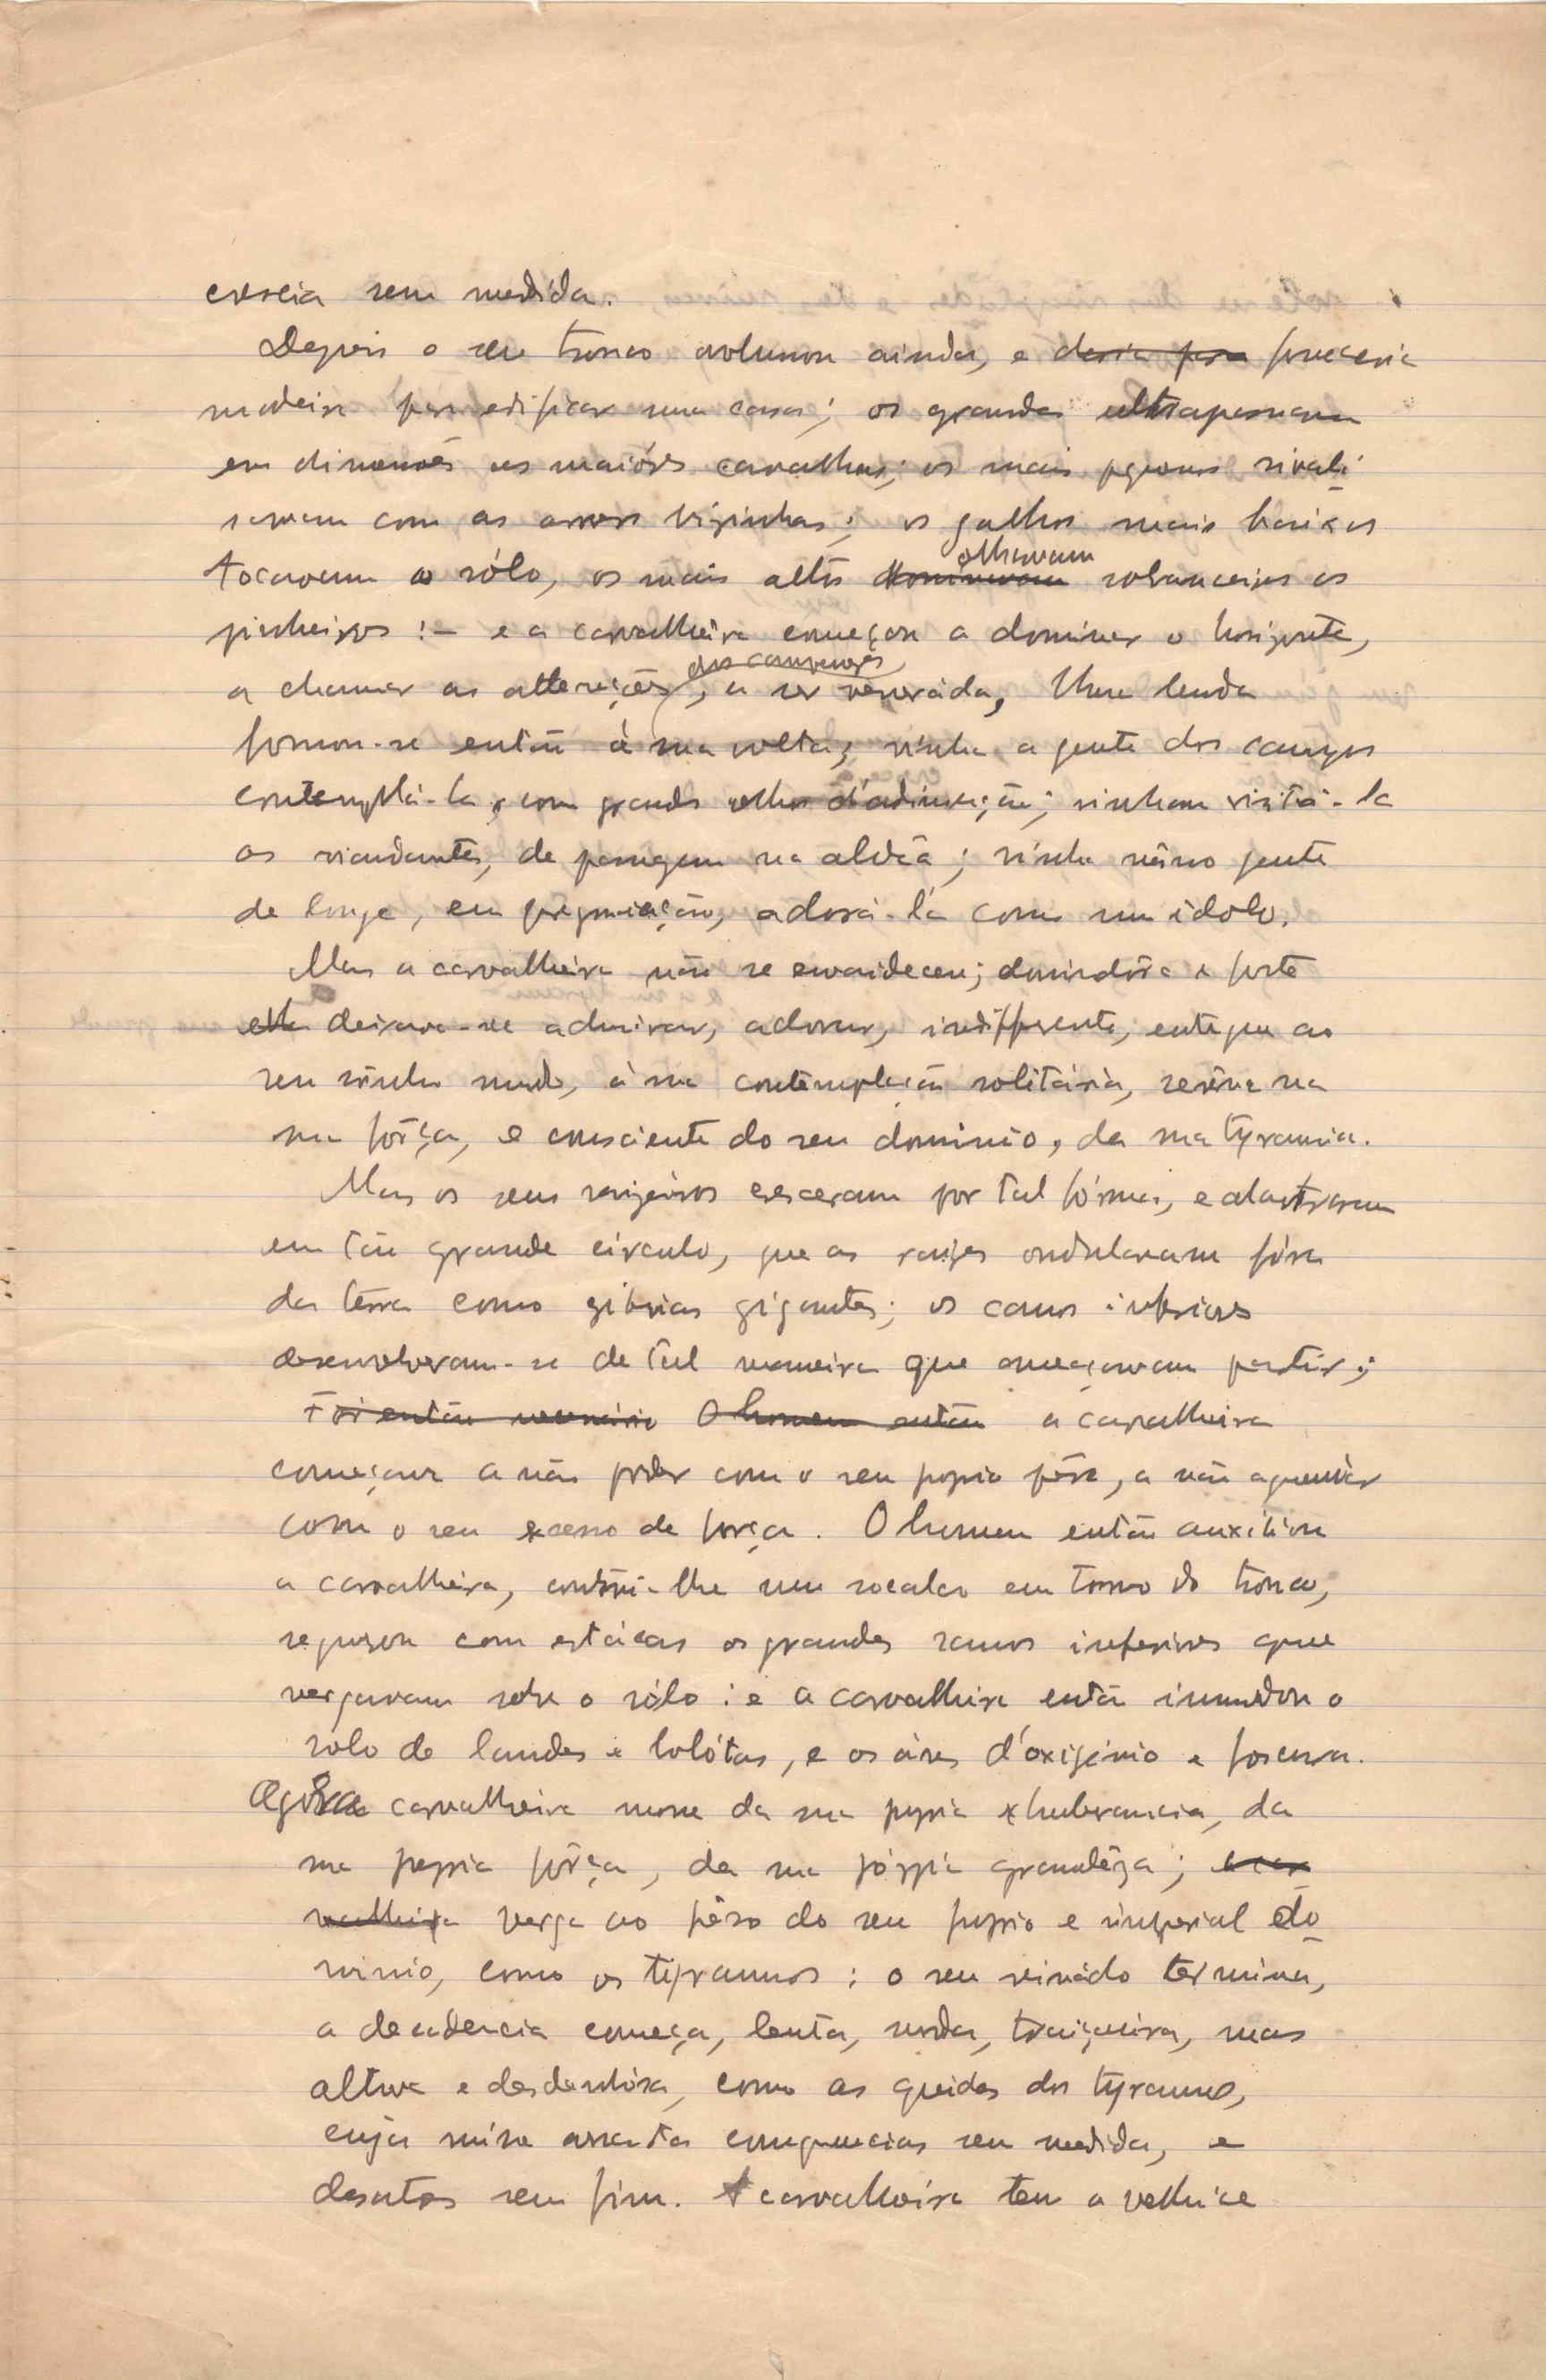 crescia sem medida.
Depois o seu tronco avolumou ainda, e daria para forneceria
madeira para edificar uma casa; os grandes ultrapassavam
em dimensões os maióres carvalhos; os mais pequenos rivali
savam com as arvores vizinhas; os galhos mais baixos
tocavam o sólo, os mais altos dominavam olhavam sobranceiros os
pinheiros :- e a carvalheira começou a dominar o horizonte,
a chamar as attenções dos camponezes, a ser venerada, Uma lenda
formou-se então á sua volta; vinha a gente dos campos
contemplá-la, com grandes olhos d'admiração; vinham visitá-la
os viandantes, de passagem na aldeã; vinha mêsmo gente
de longe, em peregrinação, adorá-la como um idolo.
Mas a carvalheira não se envaideceu; dominadôra e forte
ella deixava-se admirar, adorar, indifferente, entregue ao
seu sônho mudo, á sua contemplação solitária, serêna na
sua fôrça, e consciente do seu dominio, da sua tyrannia.
Mas os seus cresceram por tal fórma, e alastraram
em tão grande circulo, que as raizes ondularam fóra
da terra como gibóias gigantes; os ramos inferiores
desenvolveram-se de tal maneira que ameaçavam partir;
Foi então necessário O homem então a carvalheira
começava a não poder com o seu proprio pêso, a não aguentar
com o seu excesso de força. O homem então auxiliou
a carvalheira, constrói-lhe um socalco em torno do tronco,
segurou com estácas os grandes ramos inferiores que
vergavam sobre o sólo : e a carvalheira então inundou o
solo de landes e bolótas, e os áres d'oxigénio e frescura.
Agóra a carvalheira morre da sua propria exhuberancia, da
sua propria fôrça, da sua própria grandêza; a car
valheira verga ao pêso do seu proprio e imperial do
minio, como os tyrannos : o seu reinádo termina,
a decadencia começa, lenta, surda, traiçoeira, mas
altiva e desdenhósa, como as quedas dos tyrannos,
cuja ruína arrasta consequencias sem medida, e
desastres sem fim. A carvalheira tem a velhice